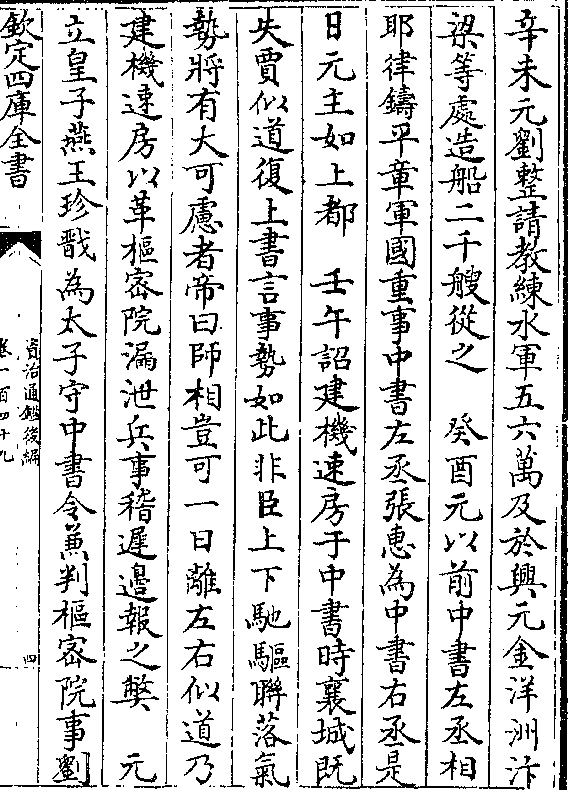 辛未元劉整請教練水軍五六萬及於興元金洋洲汴
梁等處造船二千艘從之　癸酉元以前中書左丞相
耶律鑄平章軍國重事中書左丞張惠為中書右丞是
日元主如上都　壬午詔建機速房于中書時襄城既
失賈似道復上書言事勢如此非臣上下馳驅聨落氣
勢將有大可慮者帝曰師相豈可一日離左右似道乃
建機速房以革樞宻院漏泄兵事稽遲邉報之弊　元
立皇子燕王珍戩為太子守中書令兼判樞宻院事劉
欽定四庫全書
資治通鑑後編
卷一百四十九
四